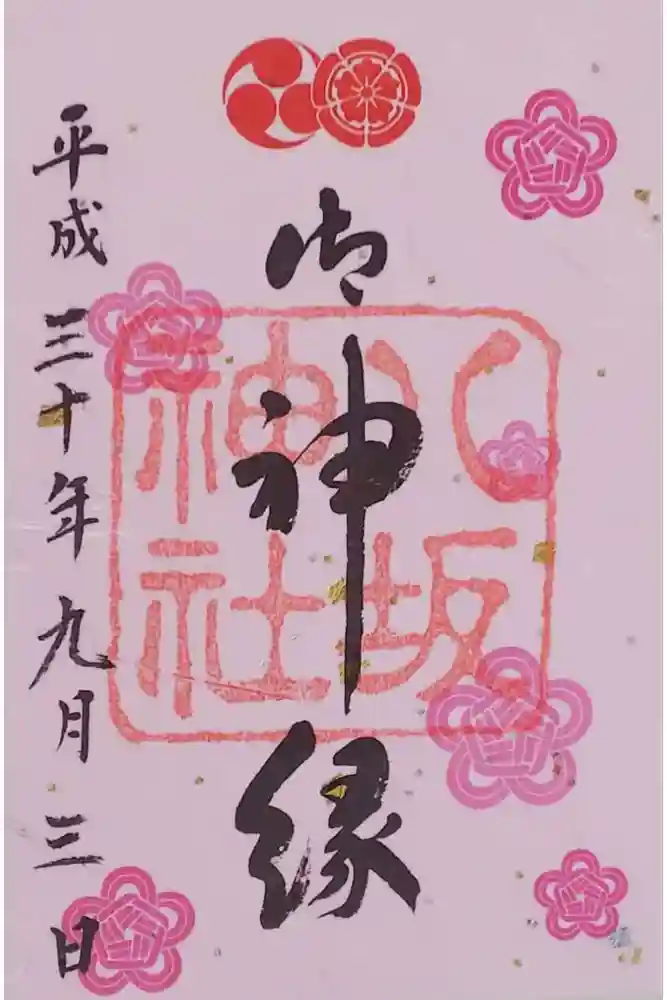 御神縁
八坂
神社
平成三十年九月三日